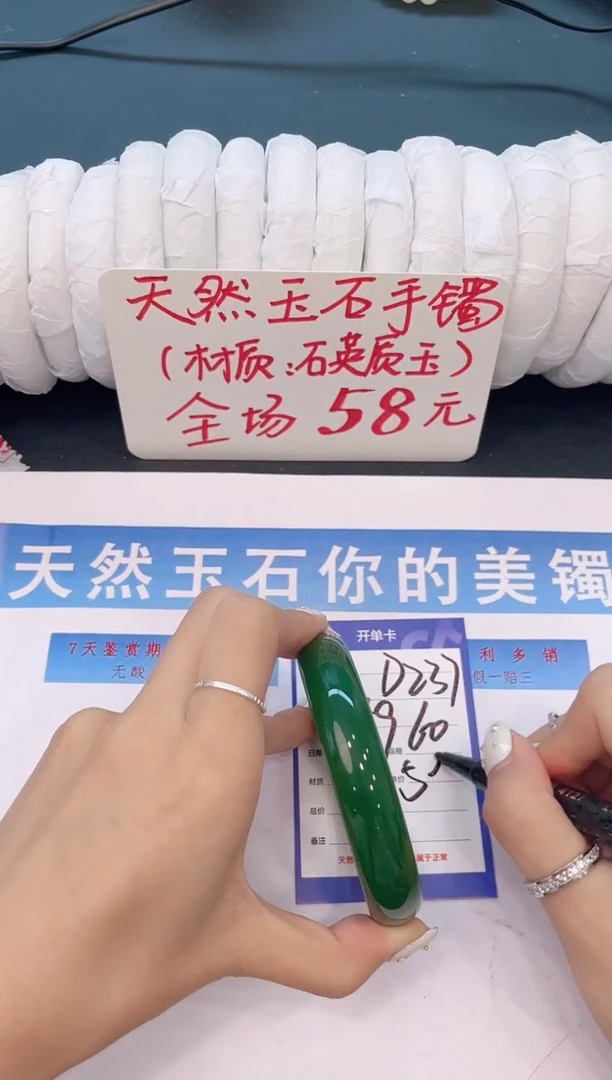 天然玉石手镯
（材质：石英质玉）
全场 58元
天然玉石你的美镯
7天鉴赏期
无酸
利多销
假一赔三
开单卡
D231
9 60
日期
规格
5
材质
单价
总价
备注
天然
属于正常